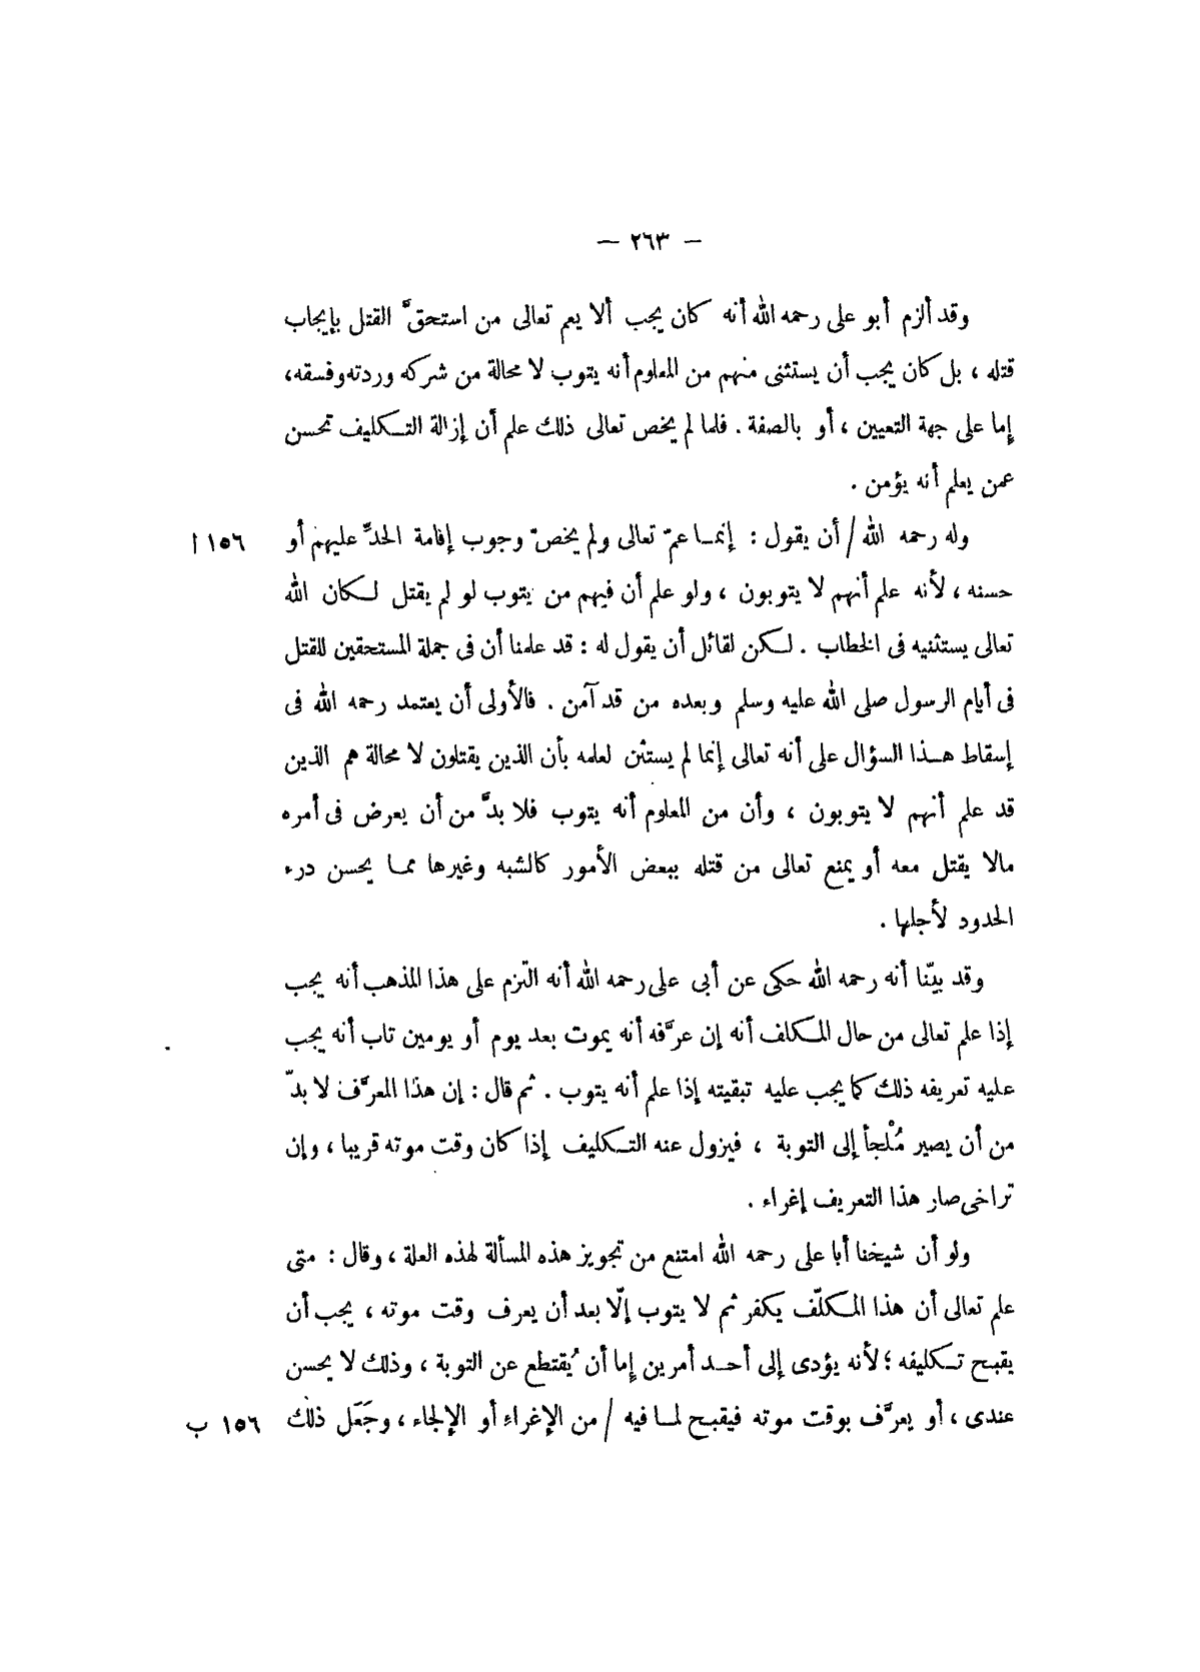 — ٢٦٣ —
وقد ألزم أبو على رحمه الله أنه كان يجب ألا يعم تعالى من استحقَّ القتل بإيجاب
قتله ، بل كان يجب أن يستثنى منهم من المعلوم أنه يتوب لا محالة من شركه وردته وفسقه،
إما على جهة التعيين ، أو بالصفة . فلما لم يخص تعالى ذلك علم أن إزالة التكليف تحسن
عمن يعلم أنه يؤمن .
وله رحمه الله / أن يقول : إنما عمّ تعالى ولم يخصّ وجوب إقامة الحدِّ عليهم أو ١٥٦ ا
حسنه ، لأنه علم أنهم لا يتوبون ، ولو علم أن فيهم من يتوب لو لم يقتل لكان الله
تعالى يستثنيه فى الخطاب . لكن لقائل أن يقول له : قد علمنا أن فى جملة المستحقين للقتل
فى أيام الرسول صلى الله عليه وسلم وبعده من قد آمن . فالأولى أن يعتمد رحمه الله فى
إسقاط هذا السؤال على أنه تعالى إنما لم يستثن لعلمه بأن الذين يقتلون لا محالة هم الذين
قد علم أنهم لا يتوبون ، وأن من المعلوم أنه يتوب فلا بدَّ من أن يعرض فى أمره
مالا يقتل معه أو يمنع تعالى من قتله ببعض الأمور كالشبه وغيرها مما يحسن درء
الحدود لأجلها .
وقد بيّنا أنه رحمه الله حكى عن أبى على رحمه الله أنه التزم على هذا المذهب أنه يجب
إذا علم تعالى من حال المكلف أنه إن عرَّفه أنه يموت بعد يوم أو يومين تاب أنه يجب
عليه تعريفه ذلك كما يجب عليه تبقيته إذا علم أنه يتوب . ثم قال : إن هذا المعرَّف لا بدّ
من أن يصير مُلْجأ إلى التوبة ، فيزول عنه التكليف إذا كان وقت موته قريبا ، وإن
تراخى صار هذا التعريف إغراء .
ولو أن شيخنا أبا على رحمه الله امتنع من تجويز هذه المسألة لهذه العلة ، وقال : متى
علم تعالى أن هذا المكلّف يكفر ثم لا يتوب إلّا بعد أن يعرف وقت موته ، يجب أن
يقبح تكليفه ؛ لأنه يؤدى إلى أحد أمرين إما أن يُقتطع عن التوبة ، وذلك لا يحسن
عندى ، أو يعرَّف بوقت موته فيقبح لما فيه / من الإغراء أو الإلجاء ، وجَعَل ذلك ١٥٦ ب